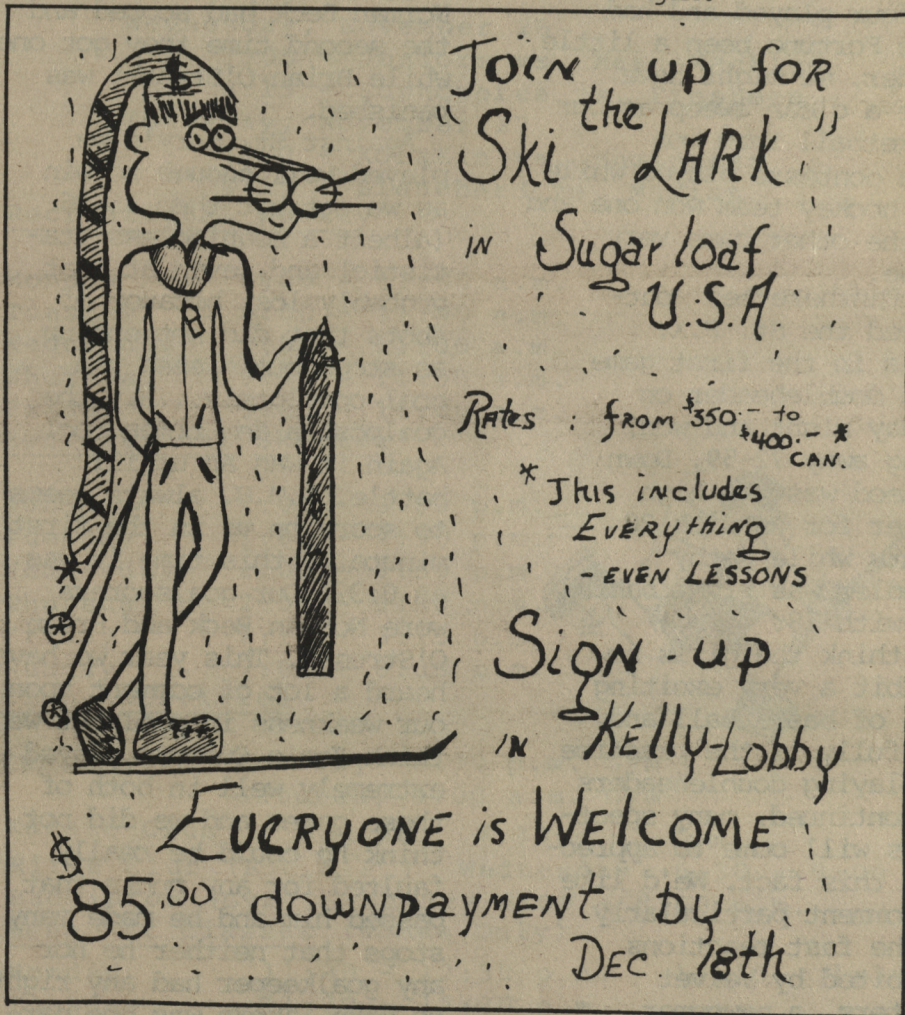 $
JOIN UP FOR
"Ski the LARK"
in Sugarloaf
U.S.A.
Rates : from $350.- to
$400.- *
CAN.
* This includes
Everything
- EVEN LESSONS
Sign-up
in Kelly-Lobby
Everyone is Welcome
$85.00 downpayment by
Dec. 18th